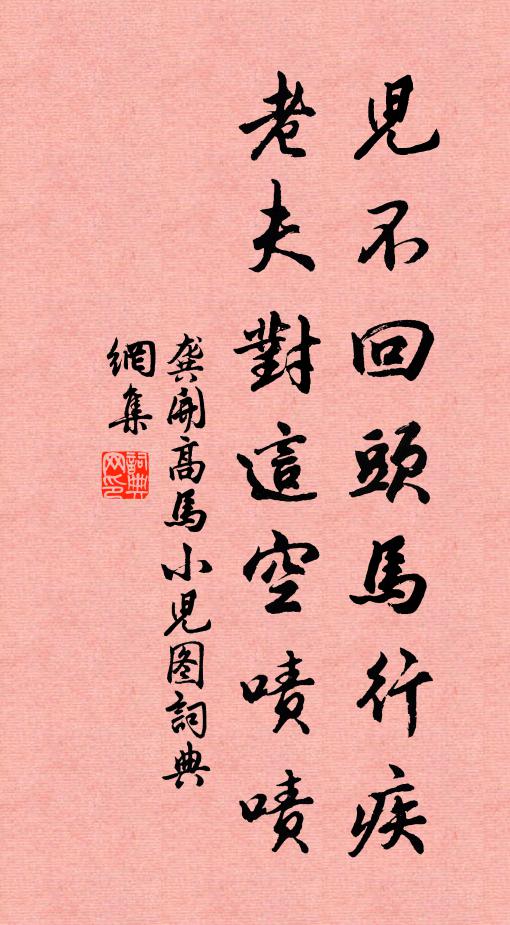 兒不回頭馬行疾
老夫對這空嘖嘖
龔開高馬小兒图詞典
網集
詞典网印